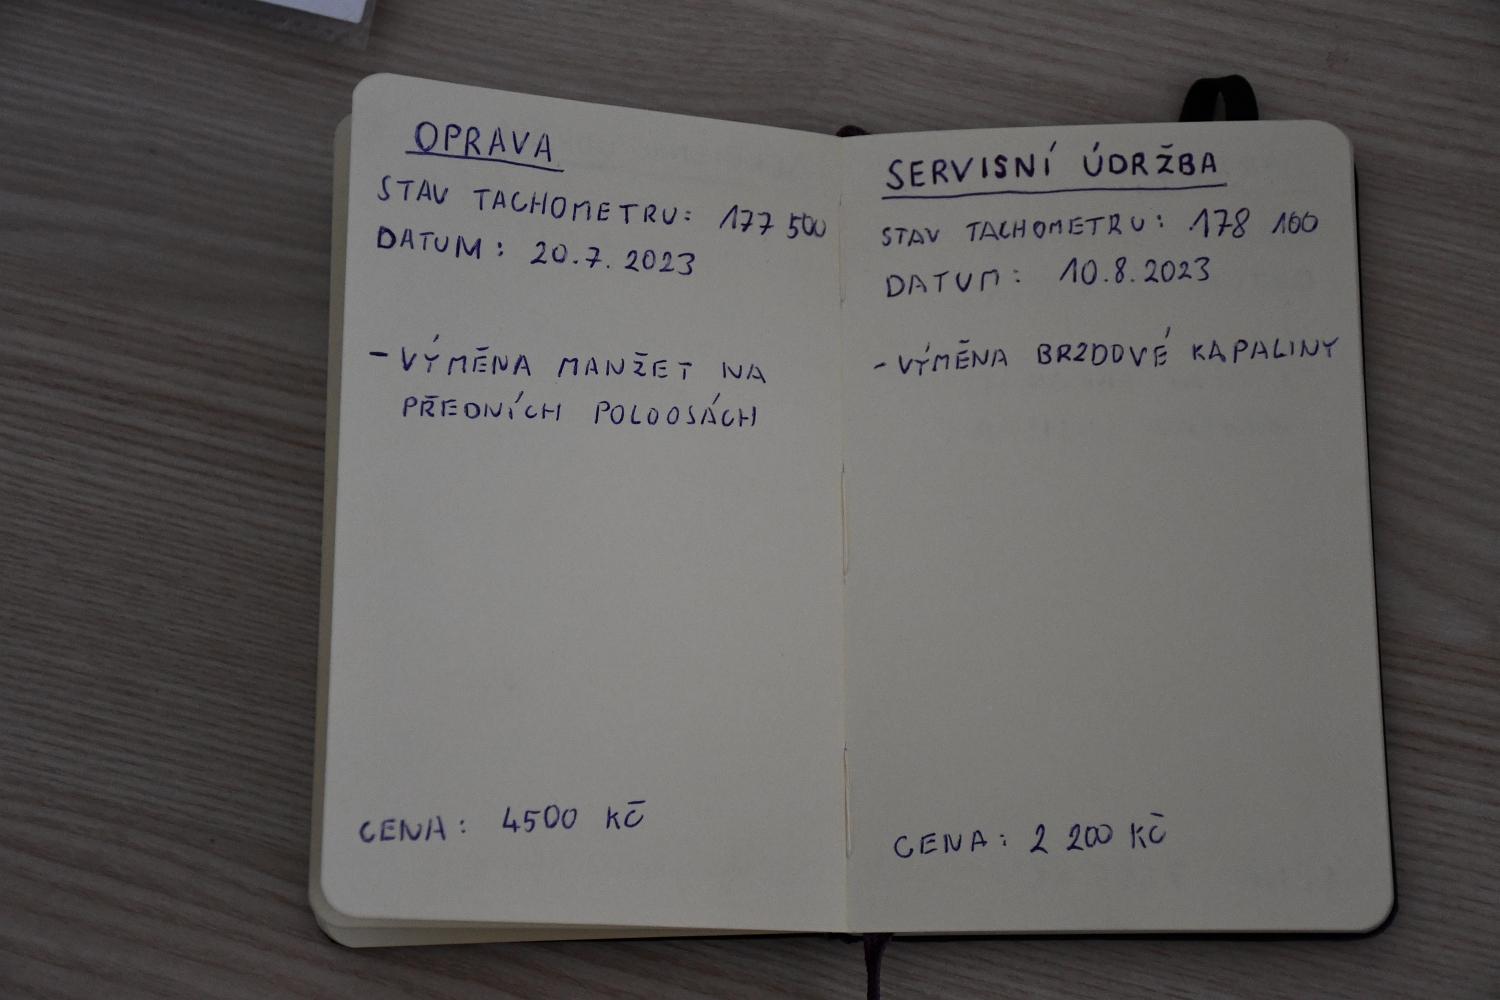 OPRAVA
STAV TACHOMETRU: 177 500
DATUM: 20.7.2023
- VÝMĚNA MANŽET NA
PŘEDNÍCH POLOOSÁCH
CENA: 4500 KČ
SERVISNÍ ÚDRŽBA
STAV TACHOMETRU: 178 100
DATUM: 10.8.2023
- VÝMĚNA BRZDOVÉ KAPALINY
CENA: 2 200 KČ